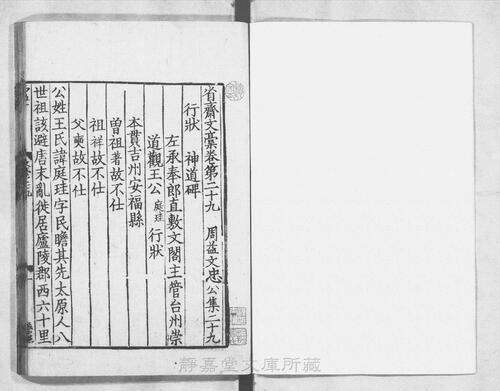 省齋文藁卷第二十九 周益文忠公集二十九
行狀 神道碑
左承奉郎直敷文閣主管台州崇
道觀王公庭珪行狀
本貫吉州安福縣
曾祖著故不仕
祖祥故不仕
父奭故不仕
公姓王氏諱庭珪字民瞻其先太原人八
世祖該避唐末亂徙居廬陵郡西六十里
靜嘉堂文庫所藏